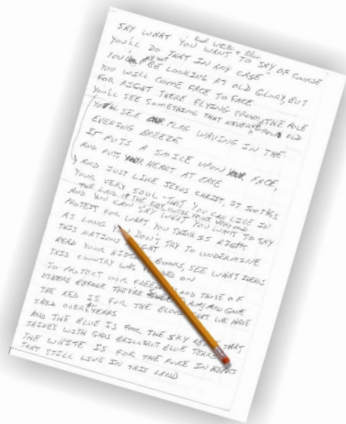 SAY WHAT YOU WANT TO SAY OF COURSE
YOU'LL DO THAT IN ANY CASE
BE LOOKING AT OLD GLORY, BUT
YOU WILL COME FACE TO FACE
FOR RIGHT THERE FLYING FROM THE POLE
YOU'LL SEE SOMETHING THAT NEVER OLD
YOU'LL SEE FLAG WAVING IN THE
EVENING BREEZE
IT PUTS A SMILE UPON YOUR FACE,
AND PUTS YOUR HEART AT EASE
AND JUST LIKE JESUS CHRIST, IT SOOTHES
YOUR VERY SOUL - THAT YOU CAN LIVE IN
THE LAND OF THE FREE
AND YOU CAN SAY WHAT YOU WANT TO SAY
PROTEST FOR WHAT YOU THINK IS RIGHT
AS LONG DON'T TRY TO UNDERMINE
THIS NATION'S
READ YOUR BOOKS, SEE WHAT IDEAS
THIS COUNTRY WAS ON
TO PROTECT OUR AND THOSE OF
OTHERS BEFORE THEY'RE GONE
THE RED IS FOR THE BLOOD THAT WE HAVE
SHED OVER YEARS
AND THE BLUE IS FOR THE SKY THAT
SHINES WITH GODS BRILLIANT BLUE
THE WHITE IS FOR THE PURE IN HEART
THAT STILL LIVE IN THIS LAND